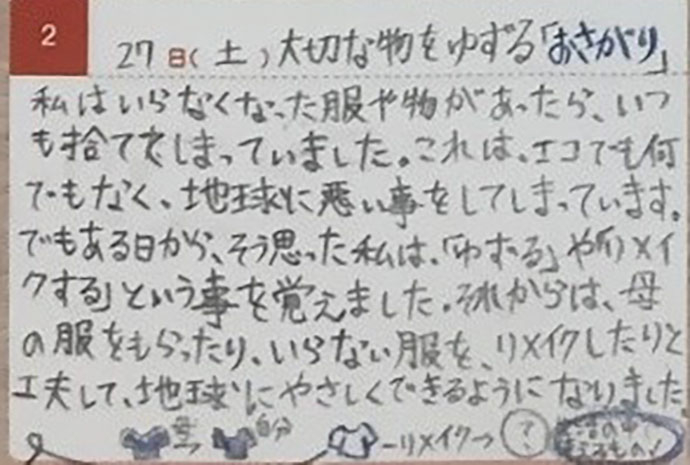 2
27日(土)大切な物をゆずる「おさがり」
私はいらなくなった服や物があったら、いつ
も捨ててしまっていました。これは、エコでも何
でもなく、地球に悪い事をしてしまっています。
でもある日から、そう思った私は、「ゆずる」や「リメイ
クする」という事を覚えました。それからは、母
の服をもらったり、いらない服を、リメイクしたりと
工夫して、地球にやさしくできるようになりました
母→ 自分 ーリメイク→ ?